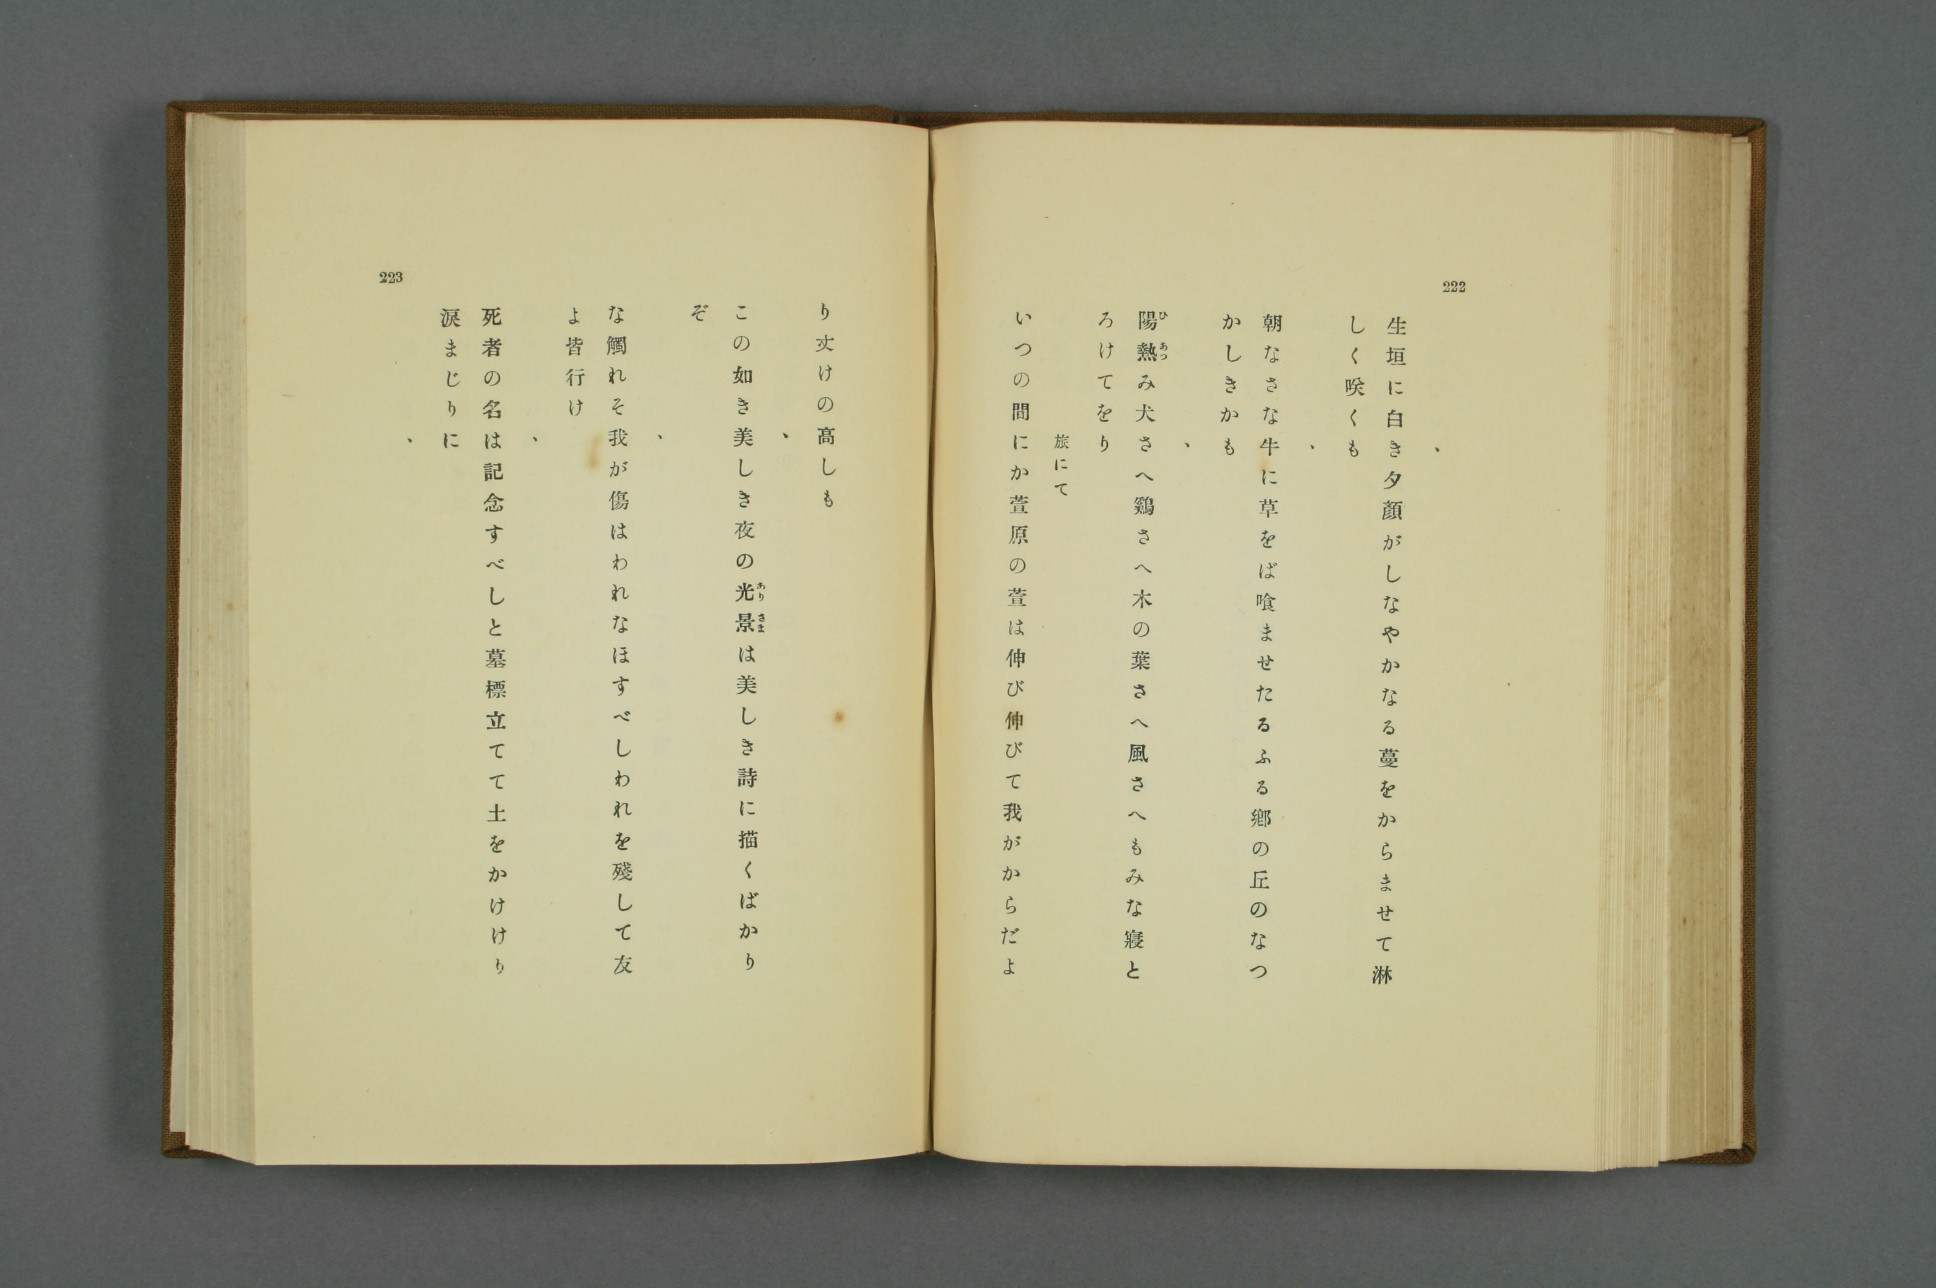 222
、
生垣に白き夕顏がしなやかなる蔓をからませて淋
しく咲くも
、
朝なさな牛に草をば喰ませたるふる鄕の丘のなつ
かしきかも
、
陽熱み犬さへ鷄さへ木の葉さへ風さへもみな寢と
ひあつ
ろけてをり
旅にて
いつの間にか萱原の萱は伸び伸びて我がからだよ
り丈けの高しも
、
この如き美しき夜の光景は美しき詩に描くばかり
ありさま
ぞ
、
な觸れそ我が傷はわれなほすべしわれを殘して友
よ皆行け
、
死者の名は記念すべしと墓標立てて土をかけけり
淚まじりに
、
223